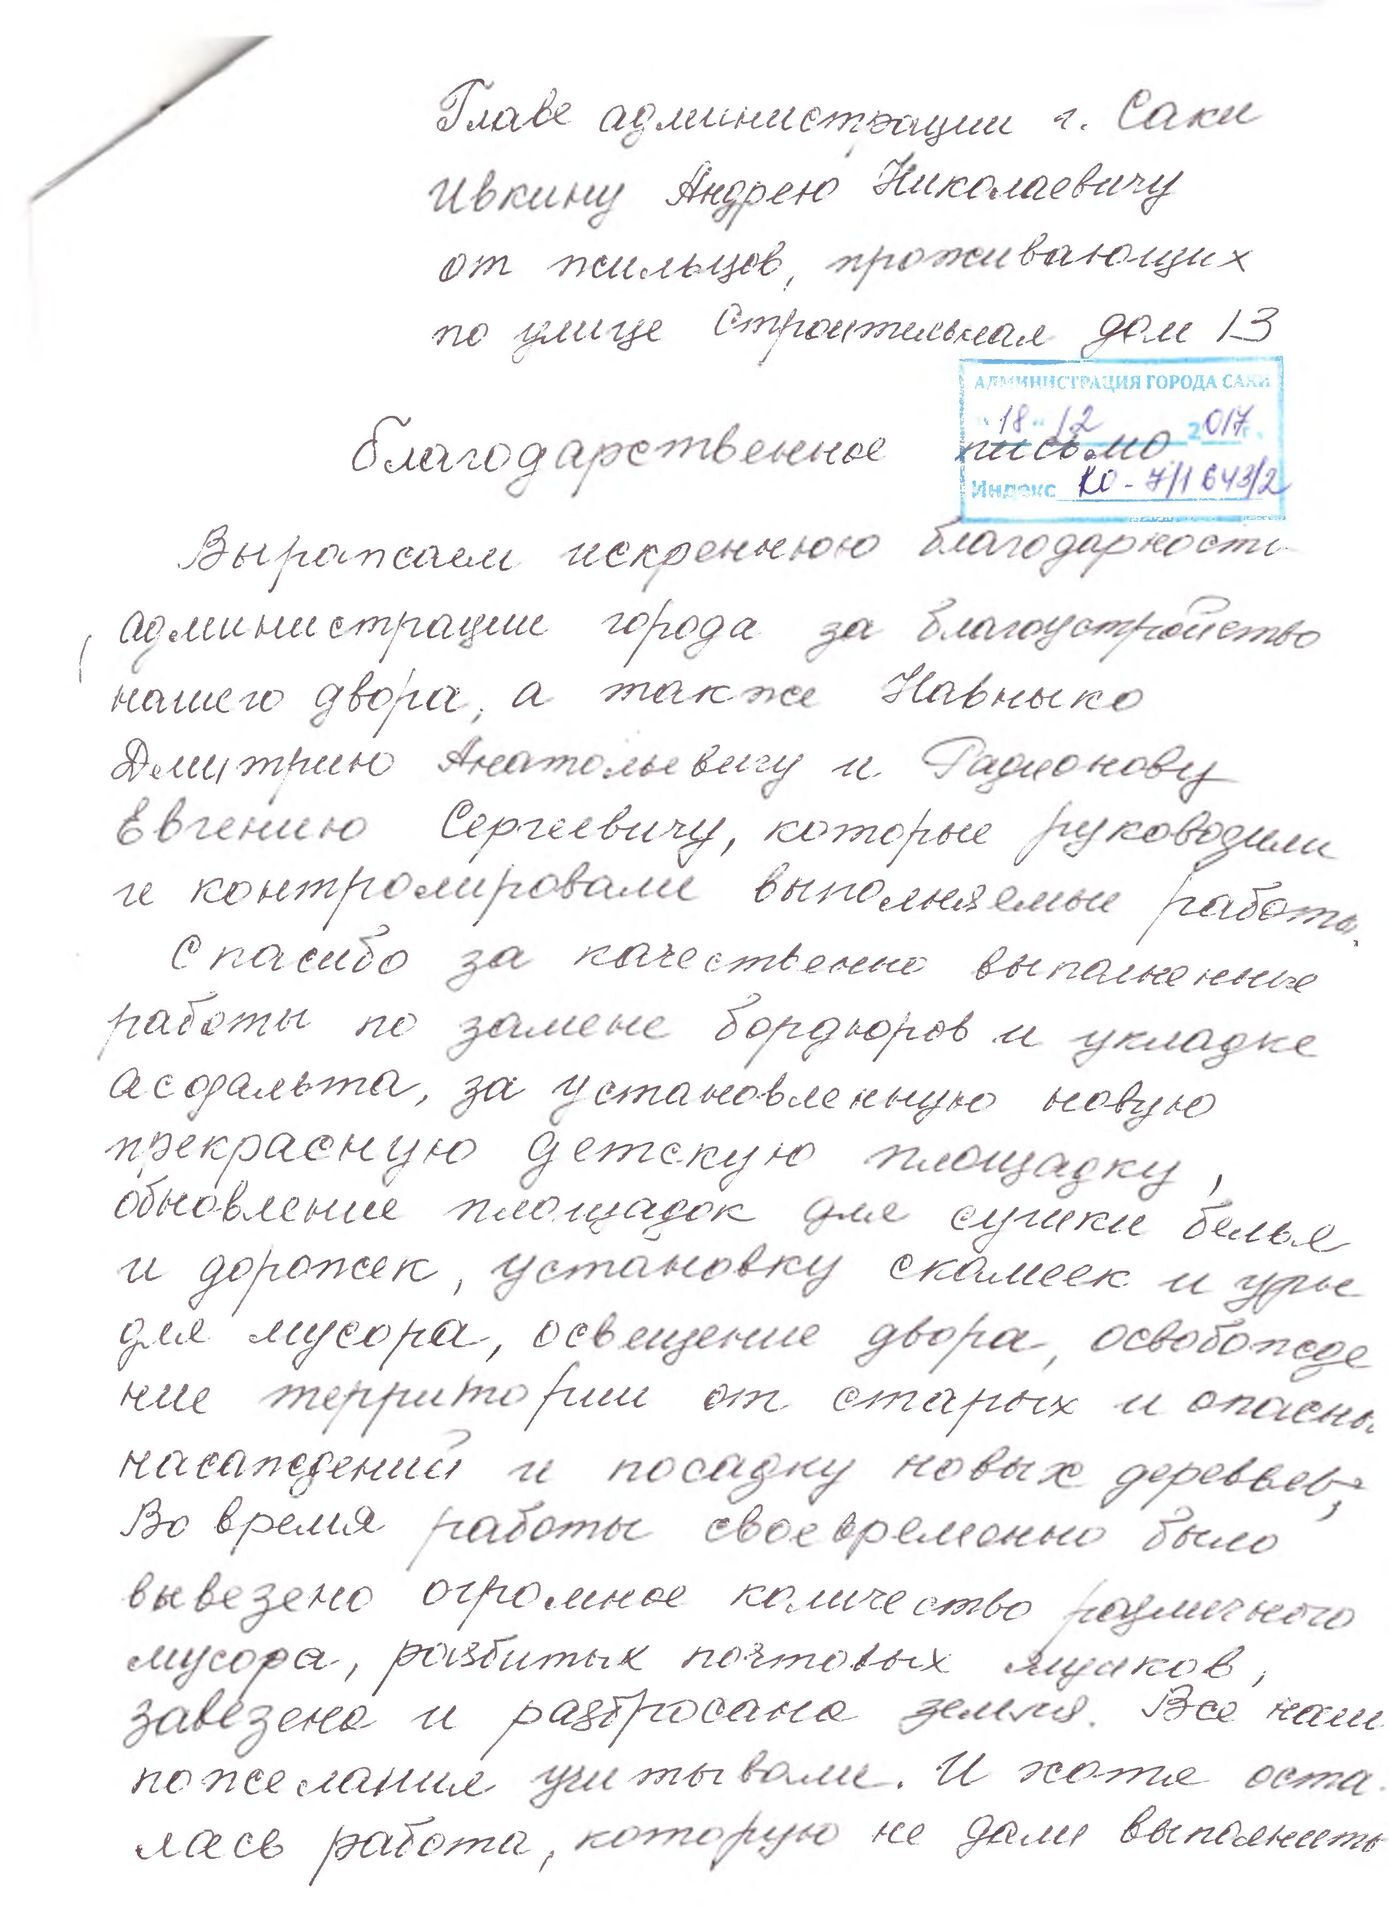 Главе администрации г. Саки
Ивкину Андрею Николаевичу
от жильцов, проживающих
по улице Строительная дом 13
АДМИНИСТРАЦИЯ ГОРОДА САКИ
"18" 12 2017г.
благодарственное письмо
Индекс КО-7/1643/2
Выражаем искреннюю благодарность
администрации города за благоустройство
нашего двора, а также Навныко
Дмитрию Анатольевичу и Радионову
Евгению Сергеевичу, которые руководили
и контролировали выполняемые работы.
Спасибо за качественно выполненные
работы по замене бордюров и укладке
асфальта, за установленную новую
прекрасную детскую площадку,
обновление площадок для сушки белья
и дорожек, установку скамеек и урн
для мусора, освещение двора, освобожде
ние территории от старых и опасны
насаждений и посадку новых деревьев,
Во время работы своевременно было
вывезено огромное количество различного
мусора, разбитых почтовых ящиков,
завезена и разбросана земля. Все наши
пожелания учитывали. И хотя оста-
лась работа, которую не дали выполнить